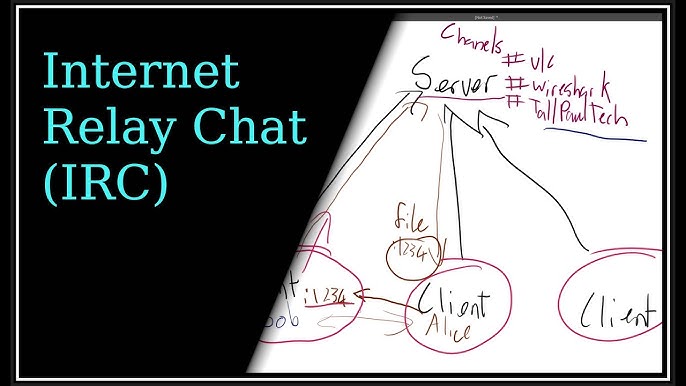 Internet
Relay Chat
(IRC)
[Not Saved] *
Chanels
# vlc
Server
# wireshark
# TallPaulTech
file
:1234
:1234
Client
Alice
Client